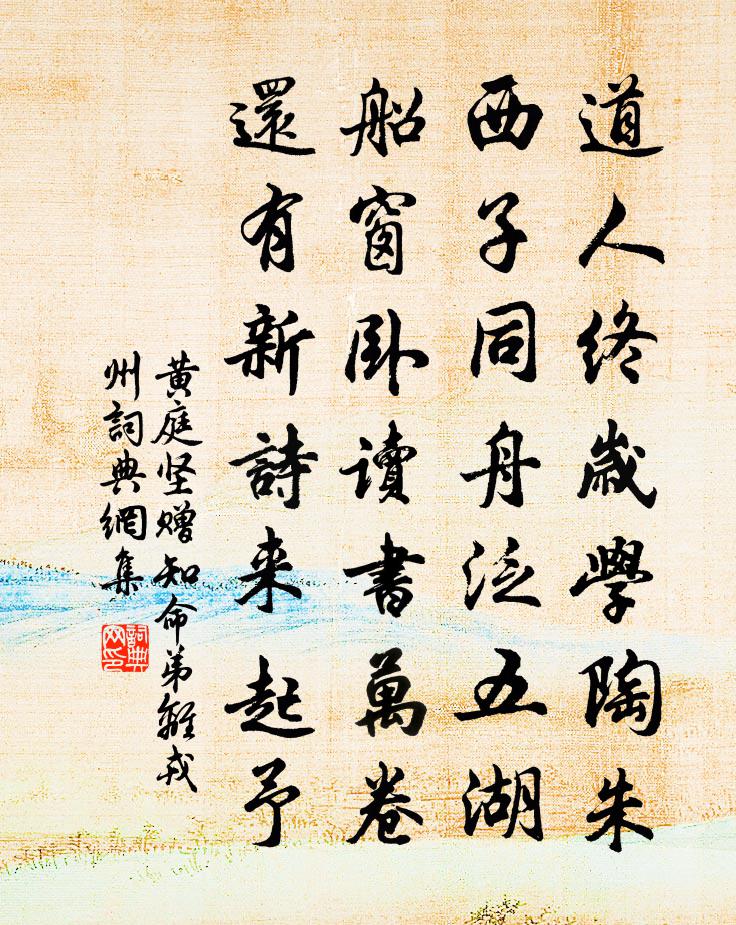 道人終歲學陶朱
西子同舟泛五湖
船窗卧讀書萬卷
還有新詩来起予
黄庭坚赠知命弟離戎
州詞典網集
詞典网印